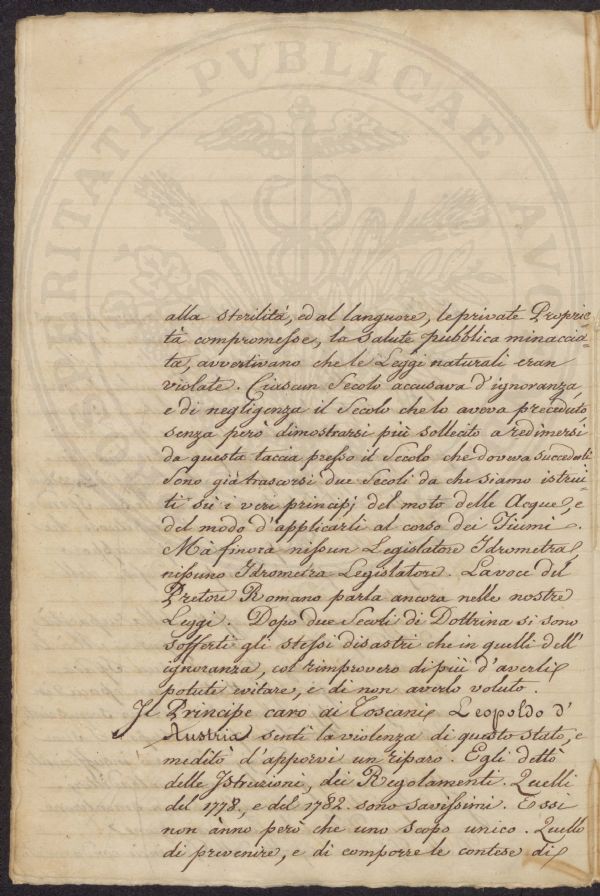 alla sterilità, ed al languore, le private Proprie=
tà compromesse, la salute pubblica minaccia=
ta, avvertivano che le Leggi naturali eran
violate. Ciascun Secolo accusava d'ignoranza,
e di negligenza il Secolo che lo aveva preceduto,
senza però dimostrarsi più sollecito a redimersi
da questa taccia presso il Secolo che doveva succederli
Sono già trascorsi due Secoli da che siamo istrui=
ti sù i veri principj del moto delle Acque, e
del modo d'applicarli al corso dei Fiumi.
Mà finora nissun Legislatore Idrometra,
nissuno Idrometra Legislatore. La voce del
Pretore Romano parla ancora nelle nostre
Leggi. Dopo due Secoli di Dottrina si sono
sofferti gli stessi disastri che in quelli dell'
ignoranza, col rimprovero di più d'averli
potuti evitare, e di non averlo voluto.
Il Principe caro ai Toscani Leopoldo d'
Austria sentì la violenza di questo stato, e
meditò d'apporvi un riparo. Egli dettò
delle Istruzioni, dei Regolamenti. Quelli
del 1778, e del 1782. sono savissimi. Essi
non ànno però che uno scopo unico. Quello
di prevenire, e di comporre le contese di
PUBLICAE